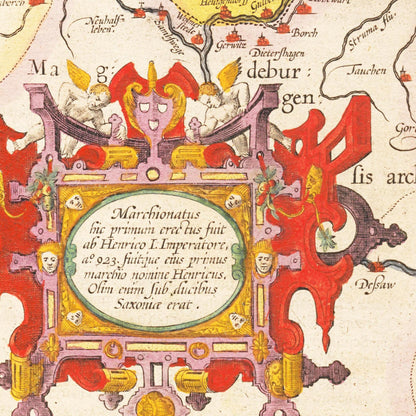 Neuhals-
leben.
Gerwitz
Borch
Dietershagen
Struma flu:
Tauchen
Mag: deburgen:
sis arch
Dessaw
Marchionatus
hic primum erectus fuit
ab Henrico I. Imperatore,
aº 923. fuitque eius primus
marchio nomine Henricus.
Olim enim sub ducibus
Saxoniæ erat.